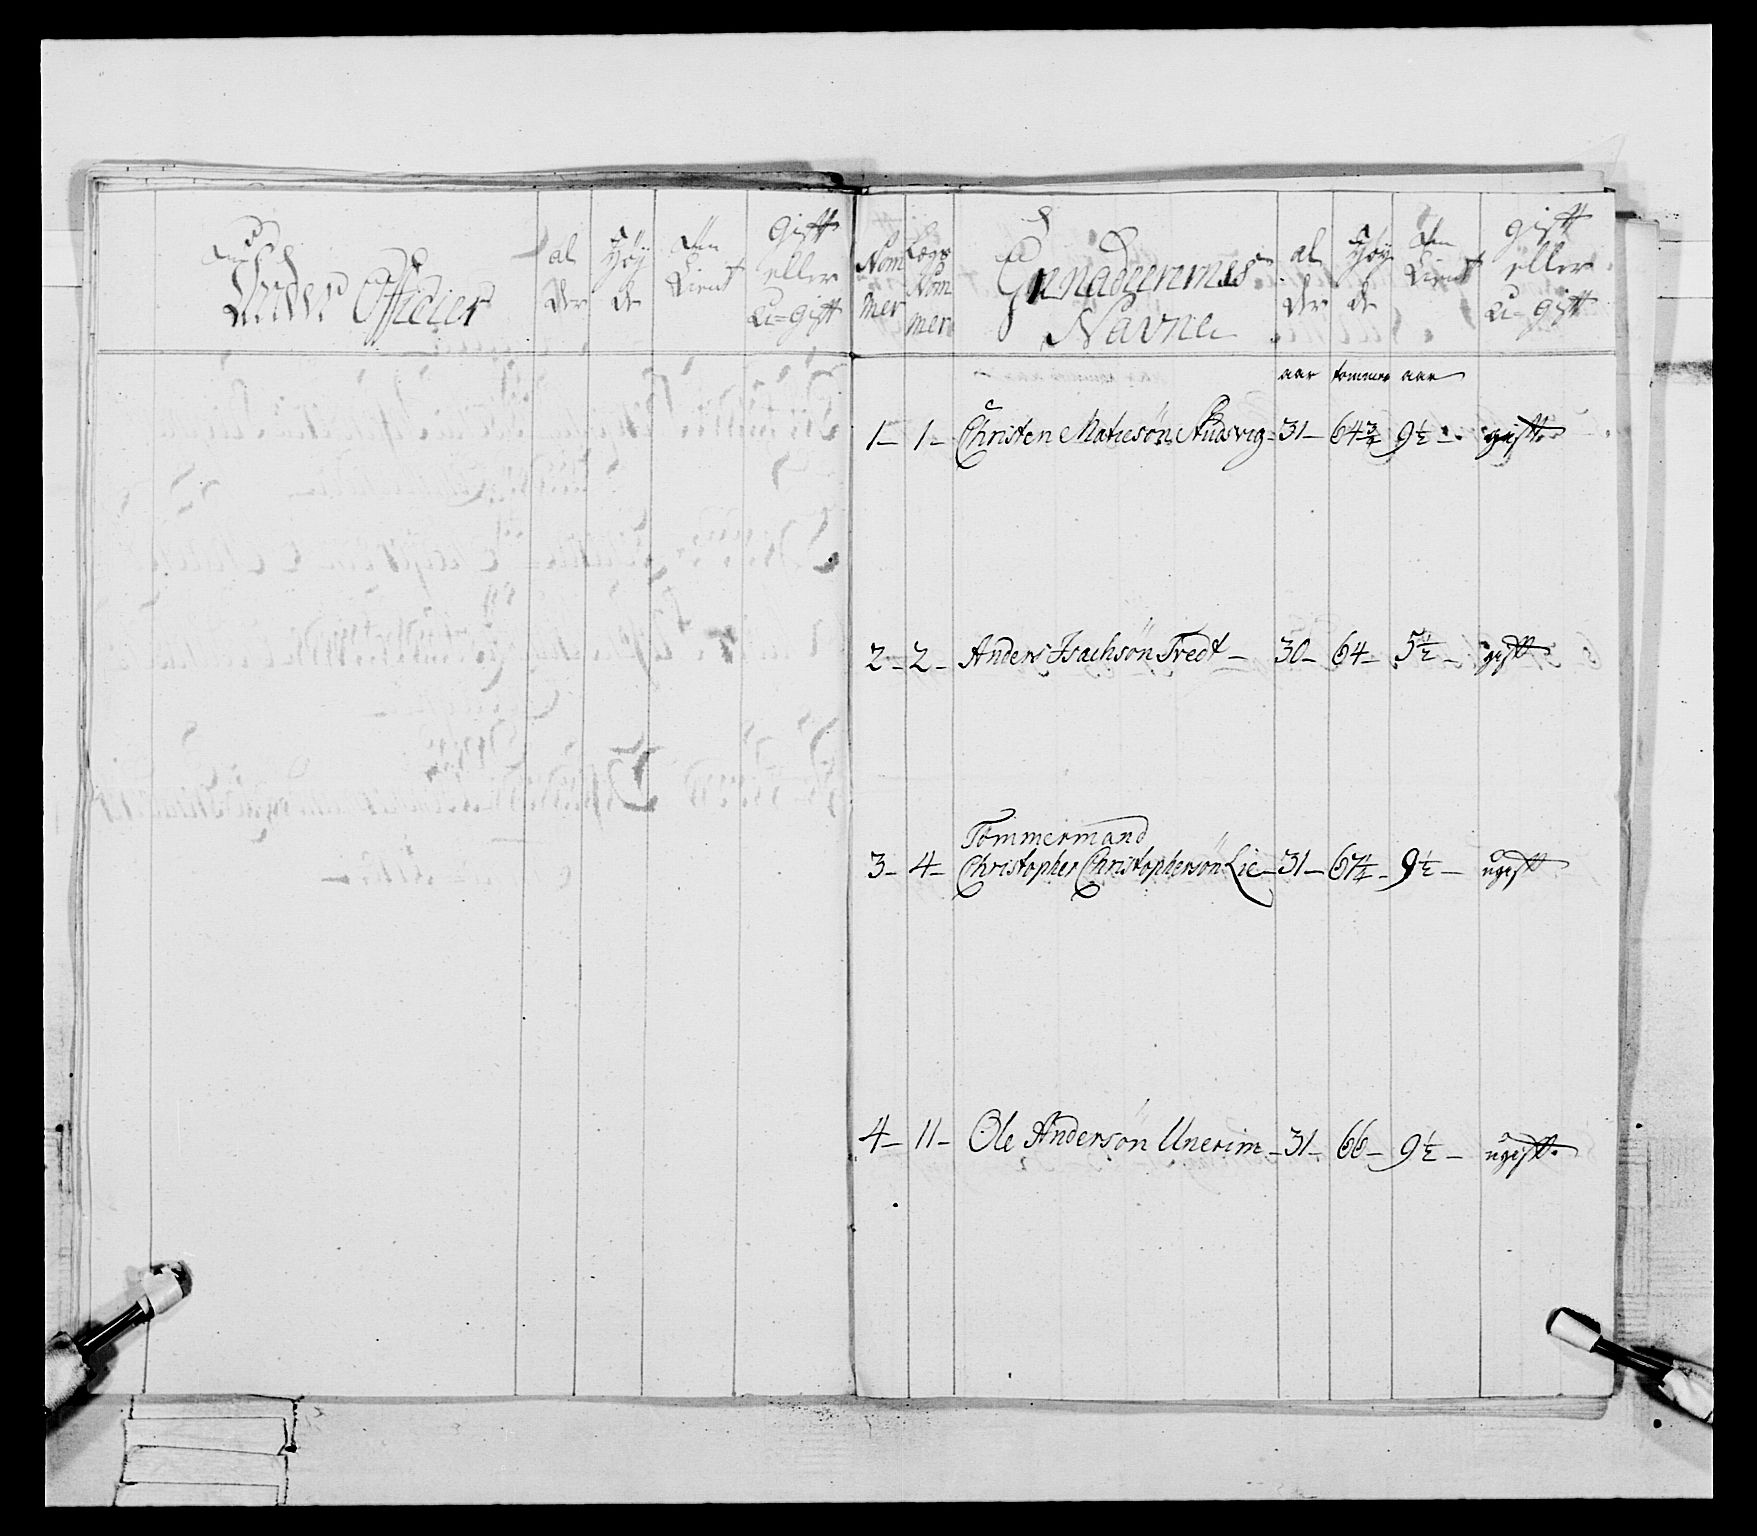 Under Officier
al
der
Høy
de
tien
Gift
eller
U=gift
Nom
mer
Lægs
Nom
mer
Gre­nadeerernes
Navne
al
der
Høy
de
tient
gift
eller
U=gift
aar tommer aar
1 – 1 – Christen Matiesøn Rudsvig – 31 – 64 3/4 9 1/2 – gift
2 – 2 – Anders Isachsøn Tredt – 30 – 64 – 5 1/2 – gift
Tømmermand
3 – 4 – Christopher Christophersøn Lie – 31 – 67 1/2 – 9 1/2 – ugift
4 – 11 – Ole Andersøn Unerim – 31 – 66 – 9 1/2 – ugift